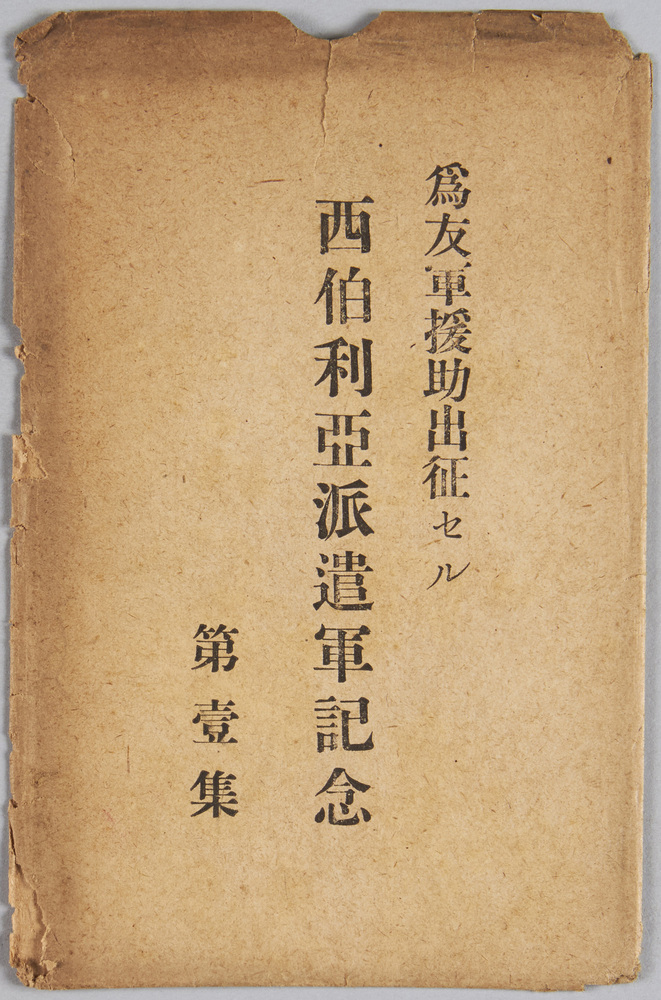 爲友軍援助出征セル
西伯利亞派遣軍記念
第壹集